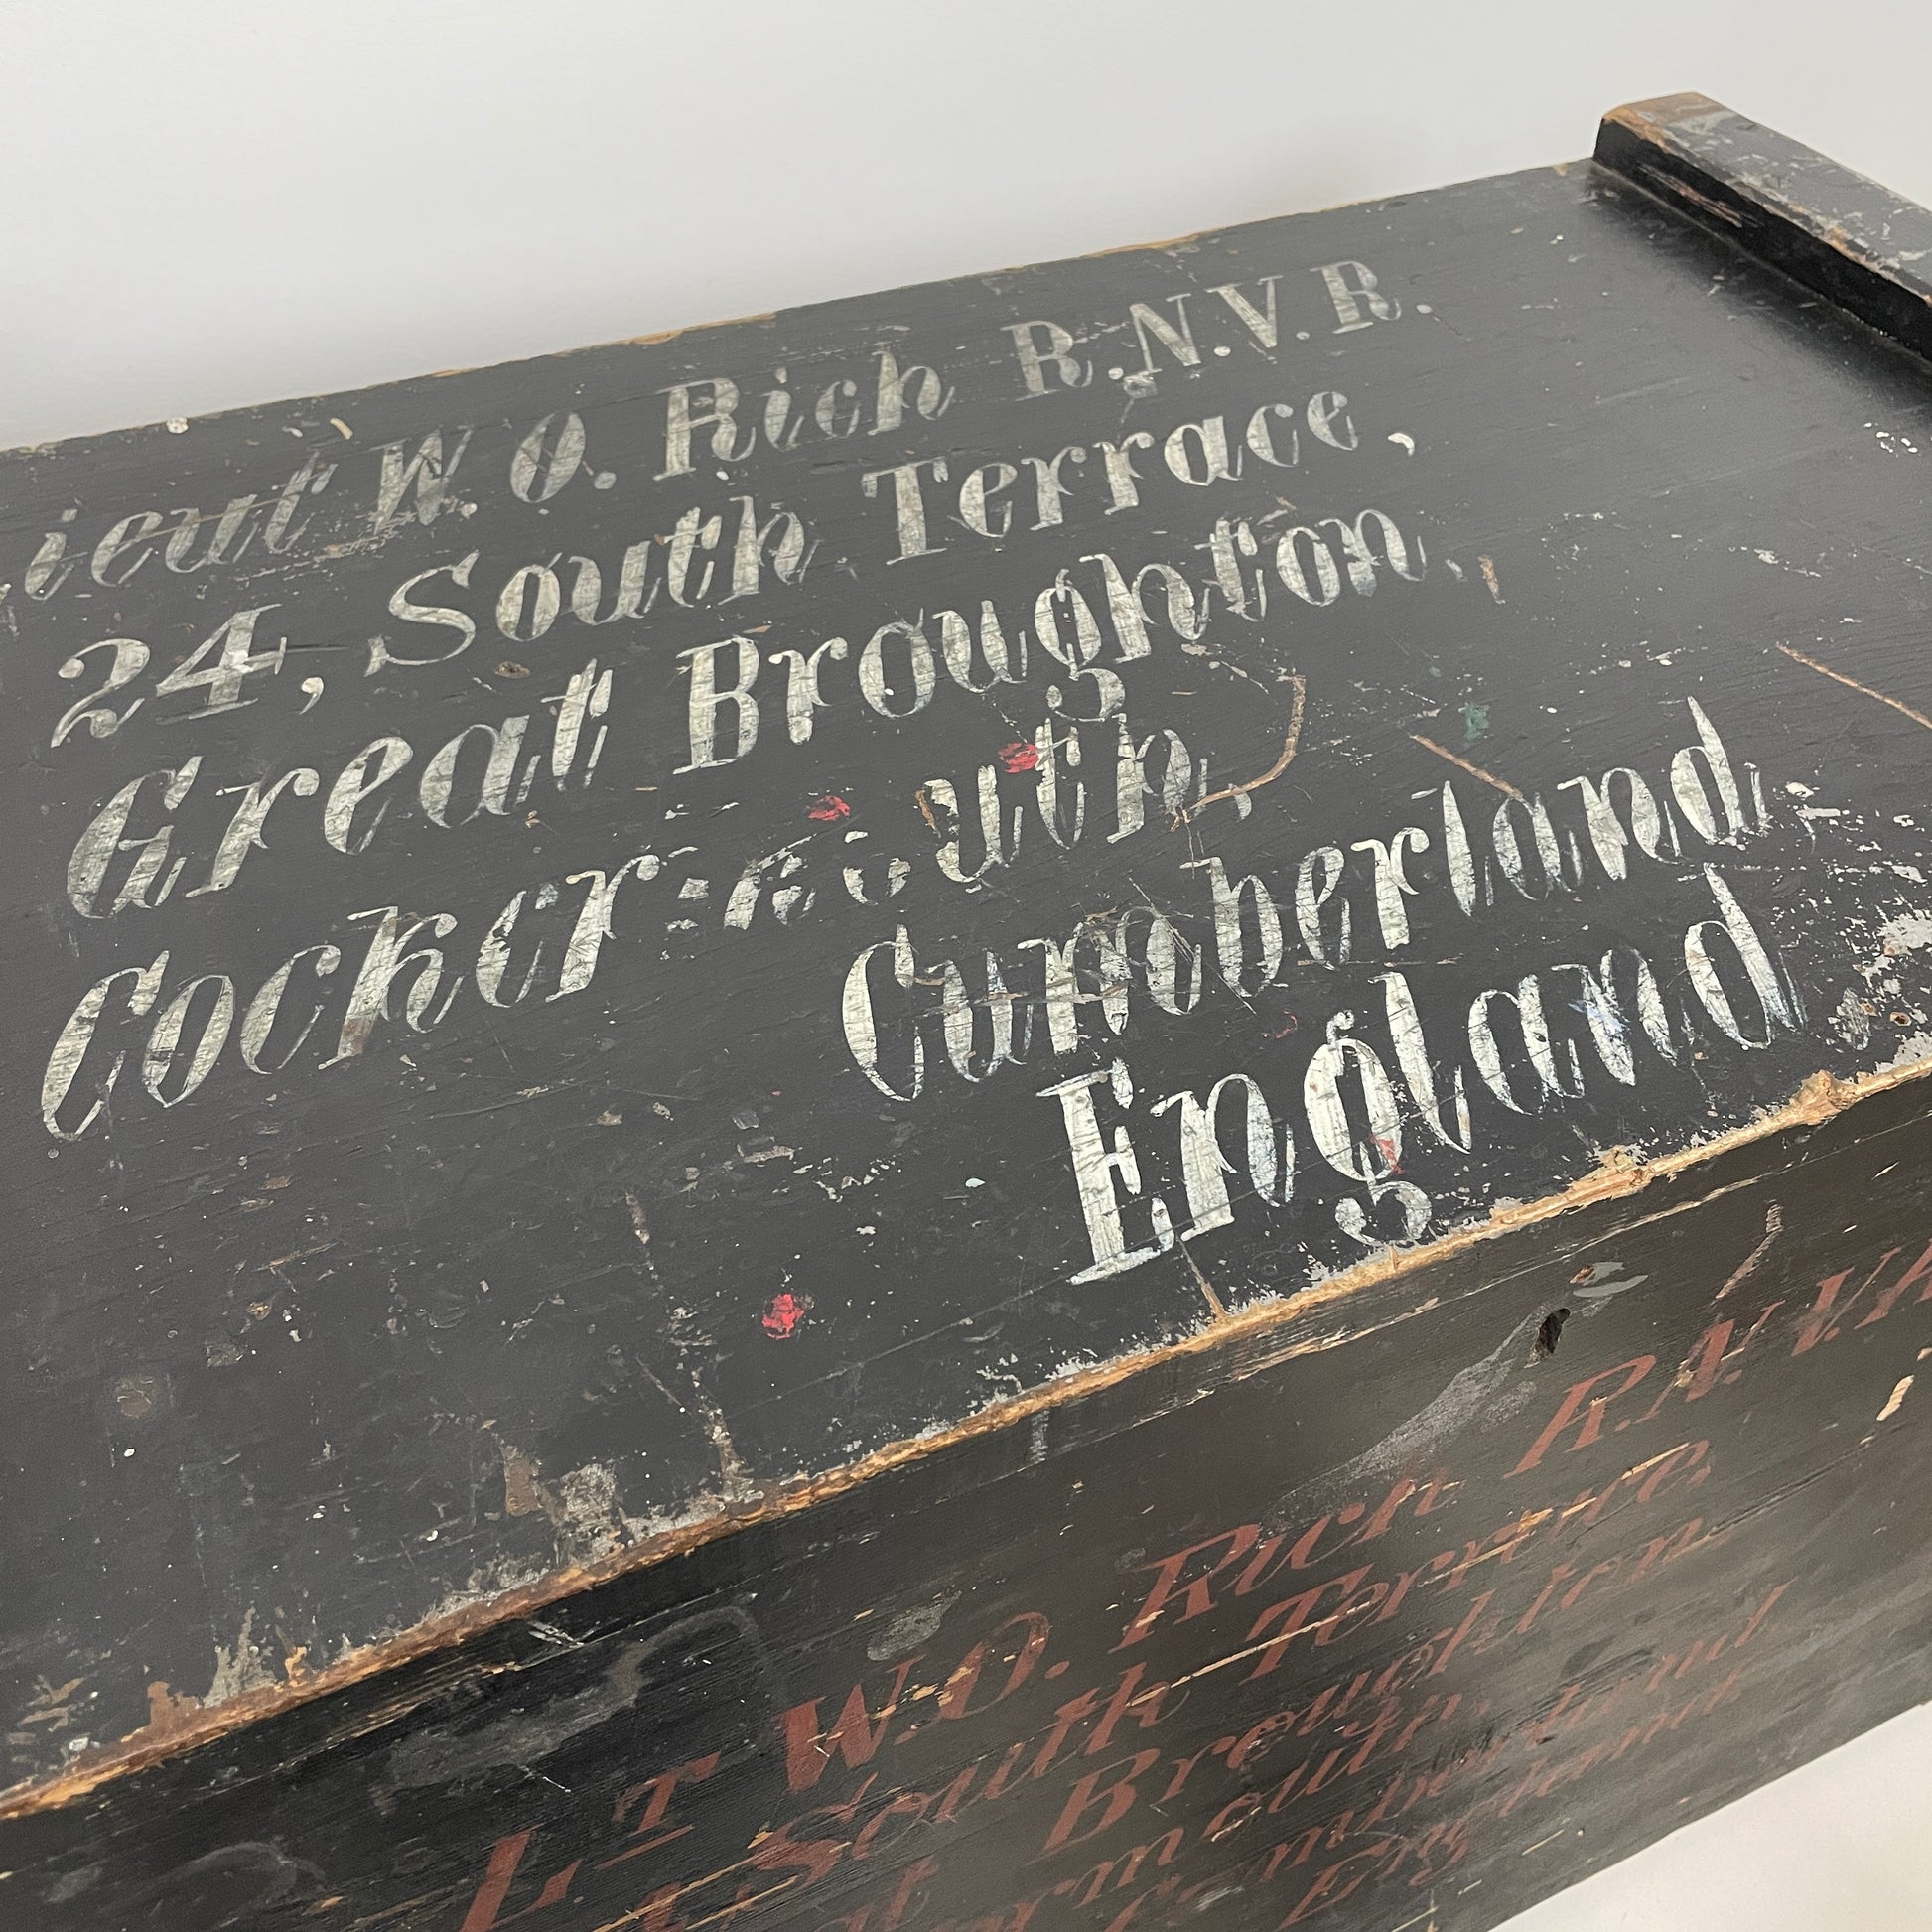 Lieut W.O. Rich R.N.V.R.
24, South Terrace,
Great Broughton,
Cockermouth,
Cumberland,
England
LT W.O. Rich R.N.V.R
South Terrace,
Broughton